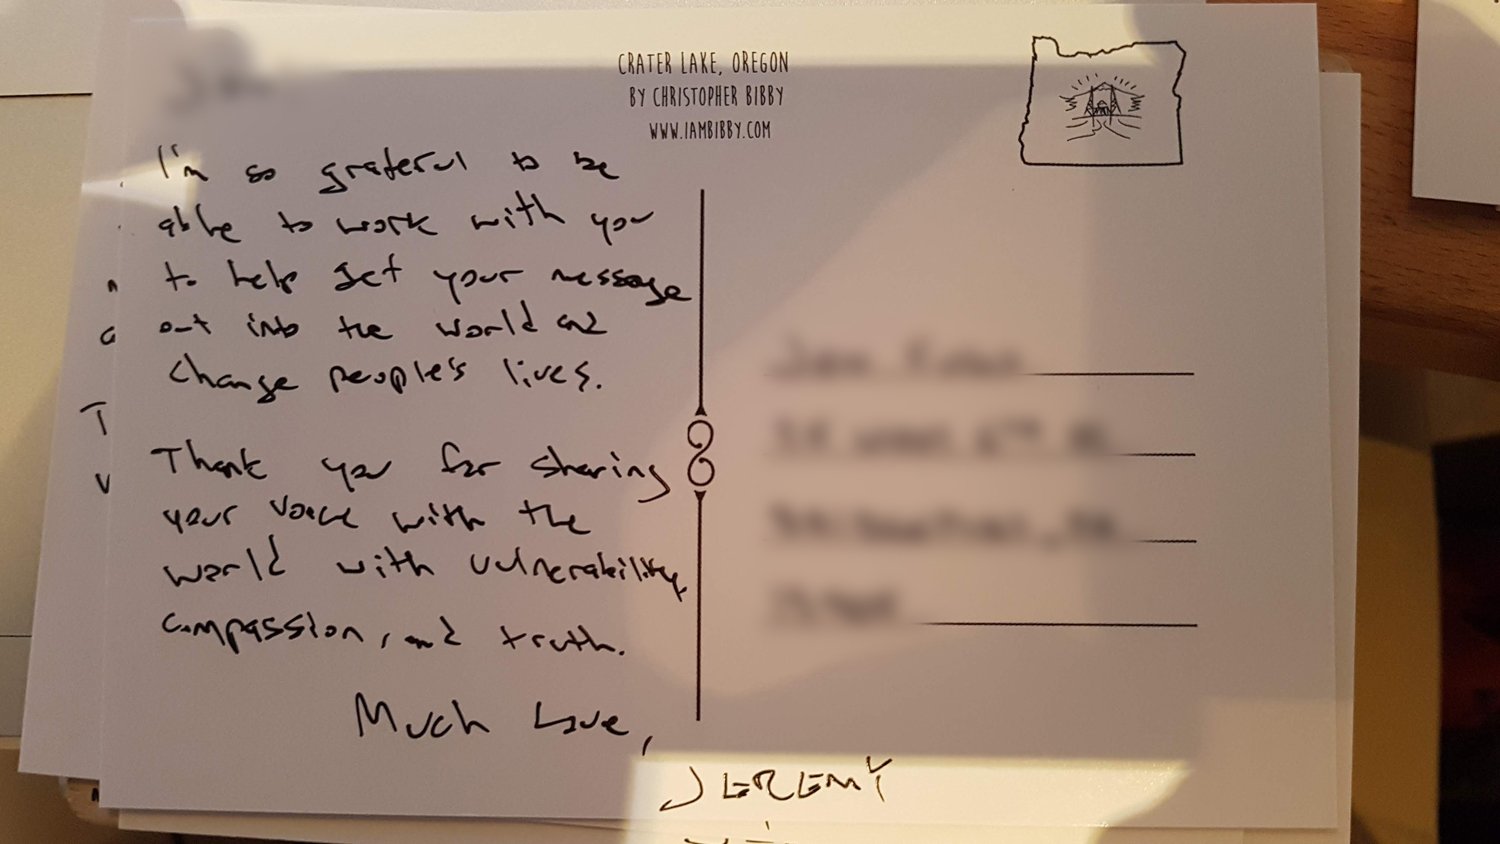 CRATER LAKE, OREGON
BY CHRISTOPHER BIBBY
WWW.IAMBIBBY.COM
I'm so grateful to be
able to work with you
to help get your message
out into the world and
change people's lives.
Thank you for sharing
your voice with the
world with vulnerability,
compassion, and truth.
Much Love,
JEREMY